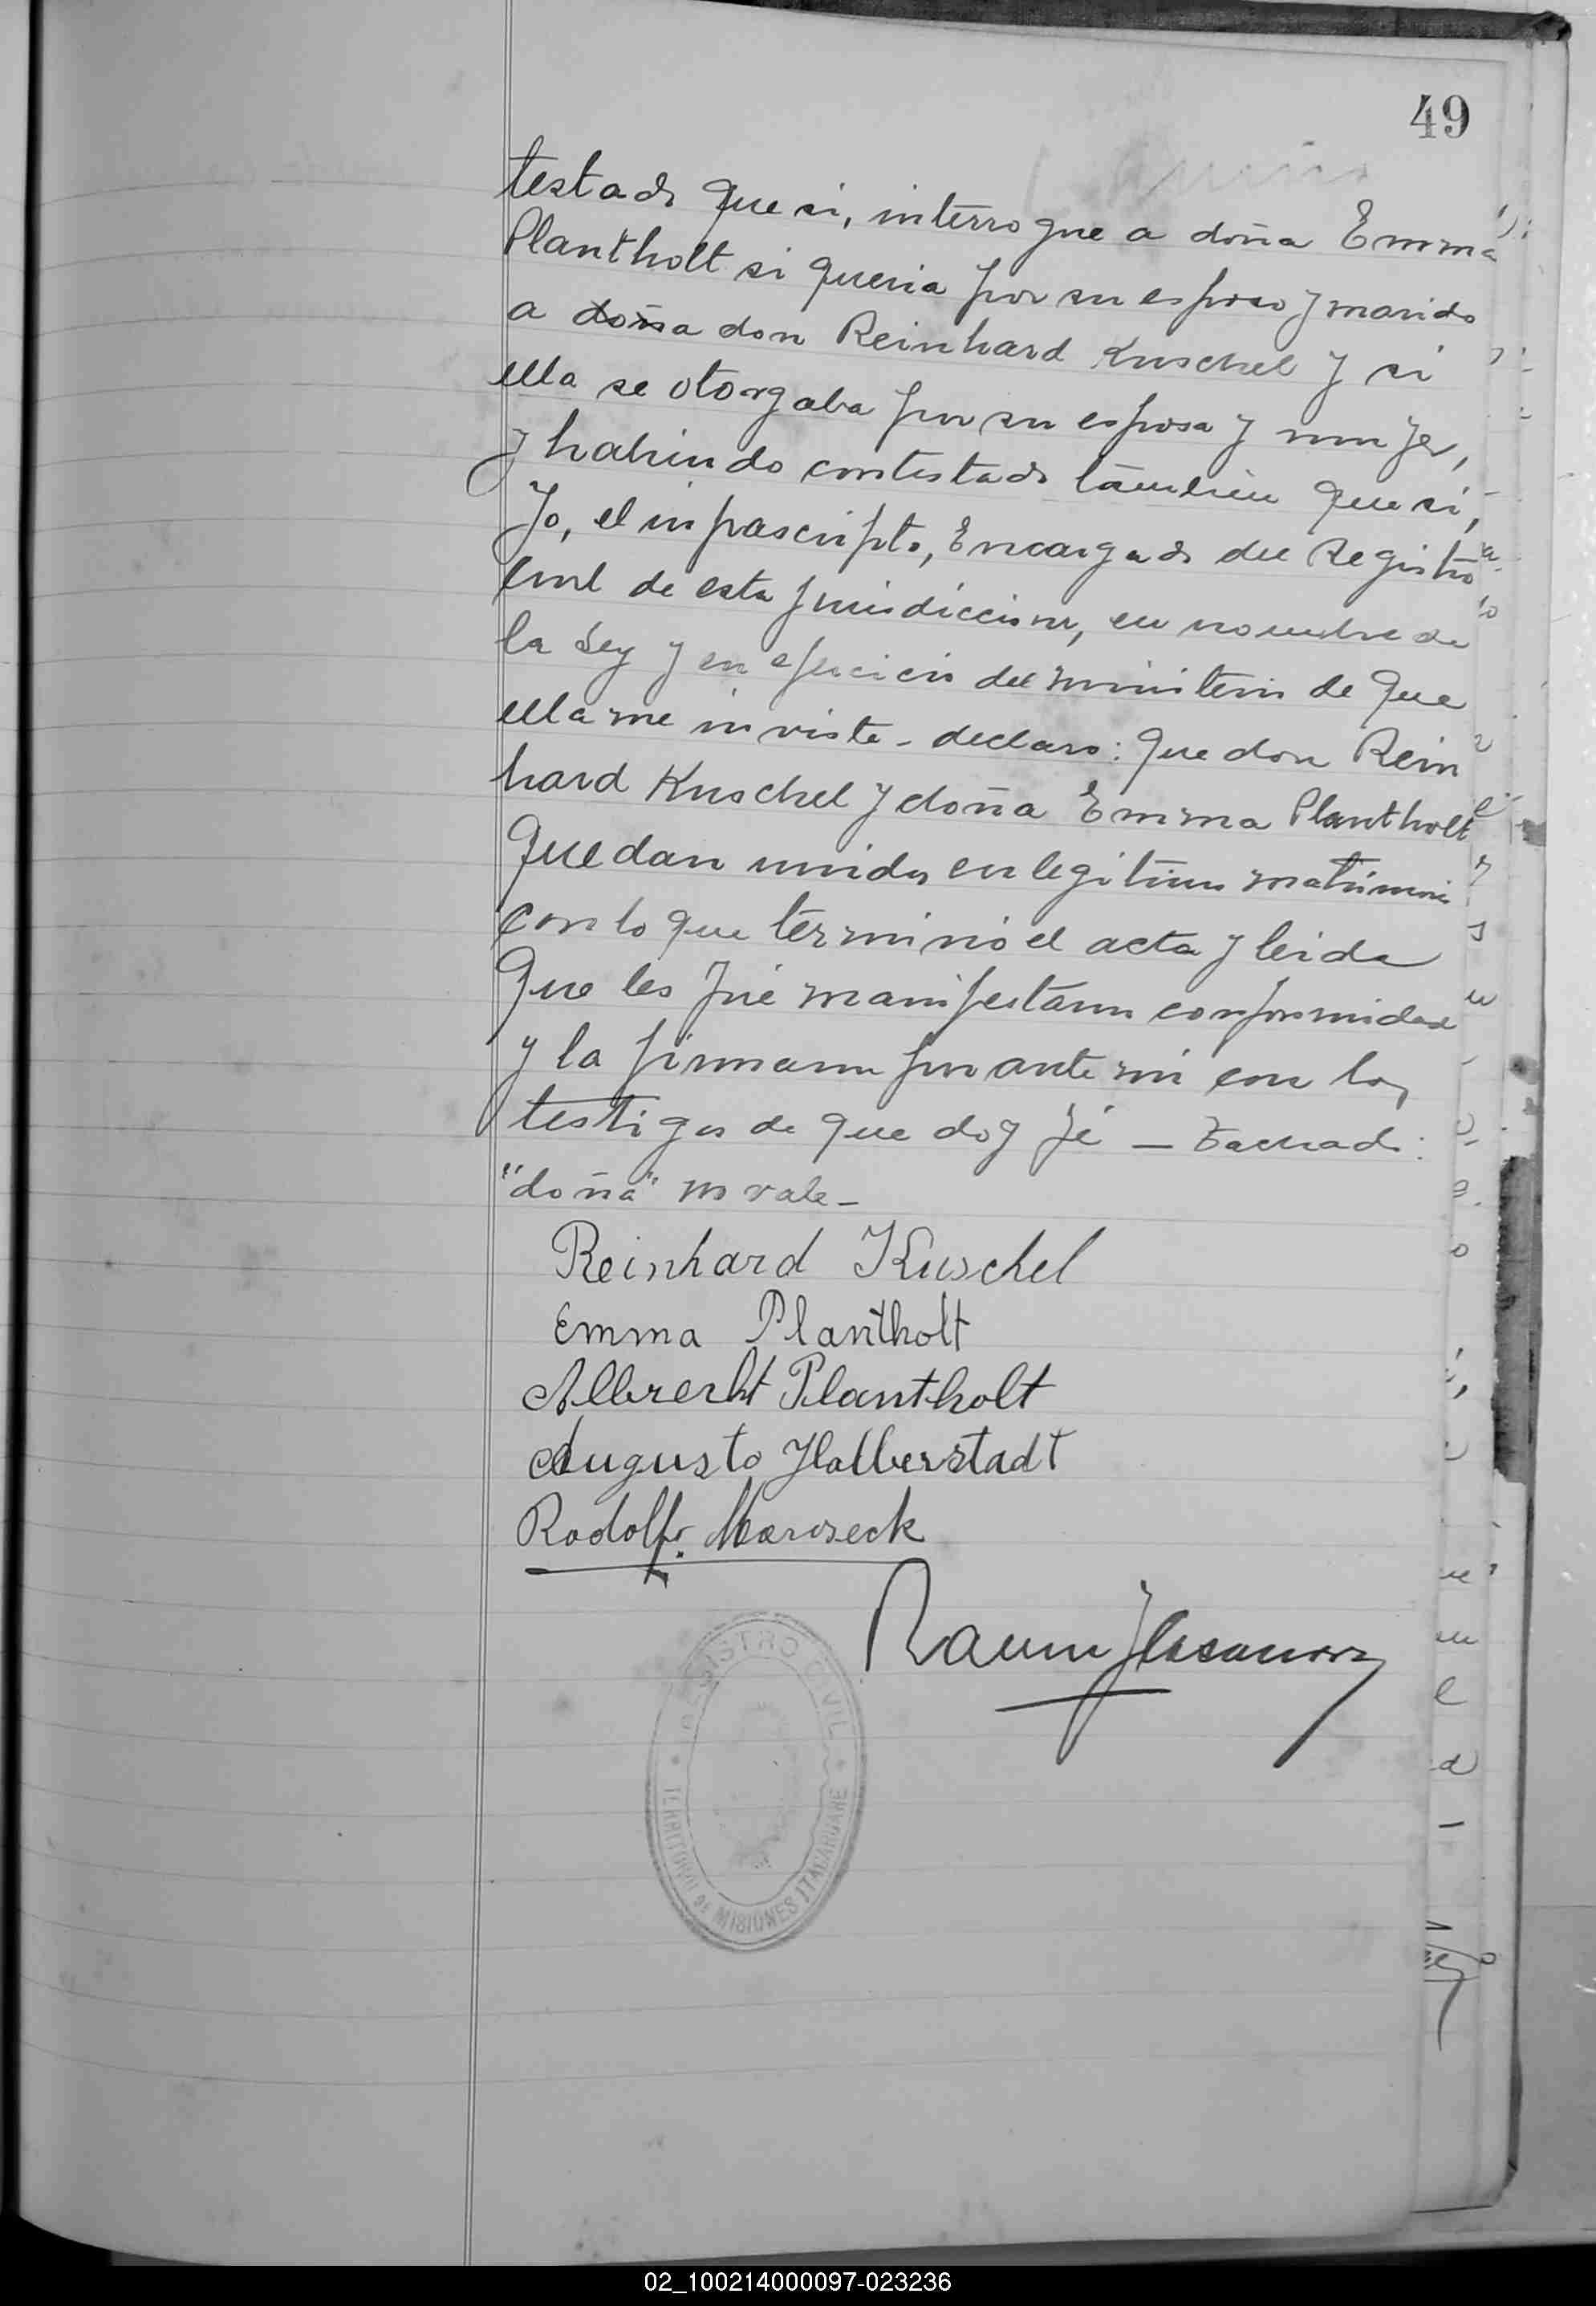 49
testado que si, interrogue a doña Emma
Plantholt si queria por su esposo y marido
a doña don Reinhard Kuschel y si
ella se otorgaba por su esposa y mujer,
y habiendo contestado tambien que si,
Yo, el infrascripto, Encargado del Registro
Civil de esta jurisdiccion, en nombre de
la Ley y en ejercicio del ministerio de que
ella me inviste - declaro: que don Rein
hard Kuschel y doña Emma Plantholt
quedan unidos en legitimo matrimonio
con lo que terminó el acta y leida
que les fué manifestaron conformidad
y la firmaron por ante mi con los
testigos de que doy fé — Tachado:
"doña" no vale -
Reinhard Kuschel
Emma Plantholt
Albrecht Plantholt
Augusto Halberstadt
Rodolfo
REGISTRO CIVIL
TERRITORIO DE MISIONES ITACARUARE
02_100214000097-023236